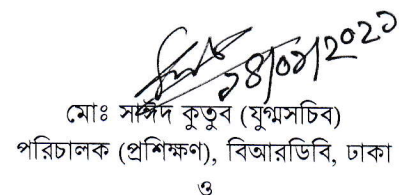 ১৪/০৯/২০২১
মোঃ সাঈদ কুতুব (যুগ্মসচিব)
পরিচালক (প্রশিক্ষণ), বিআরডিবি, ঢাকা
ও